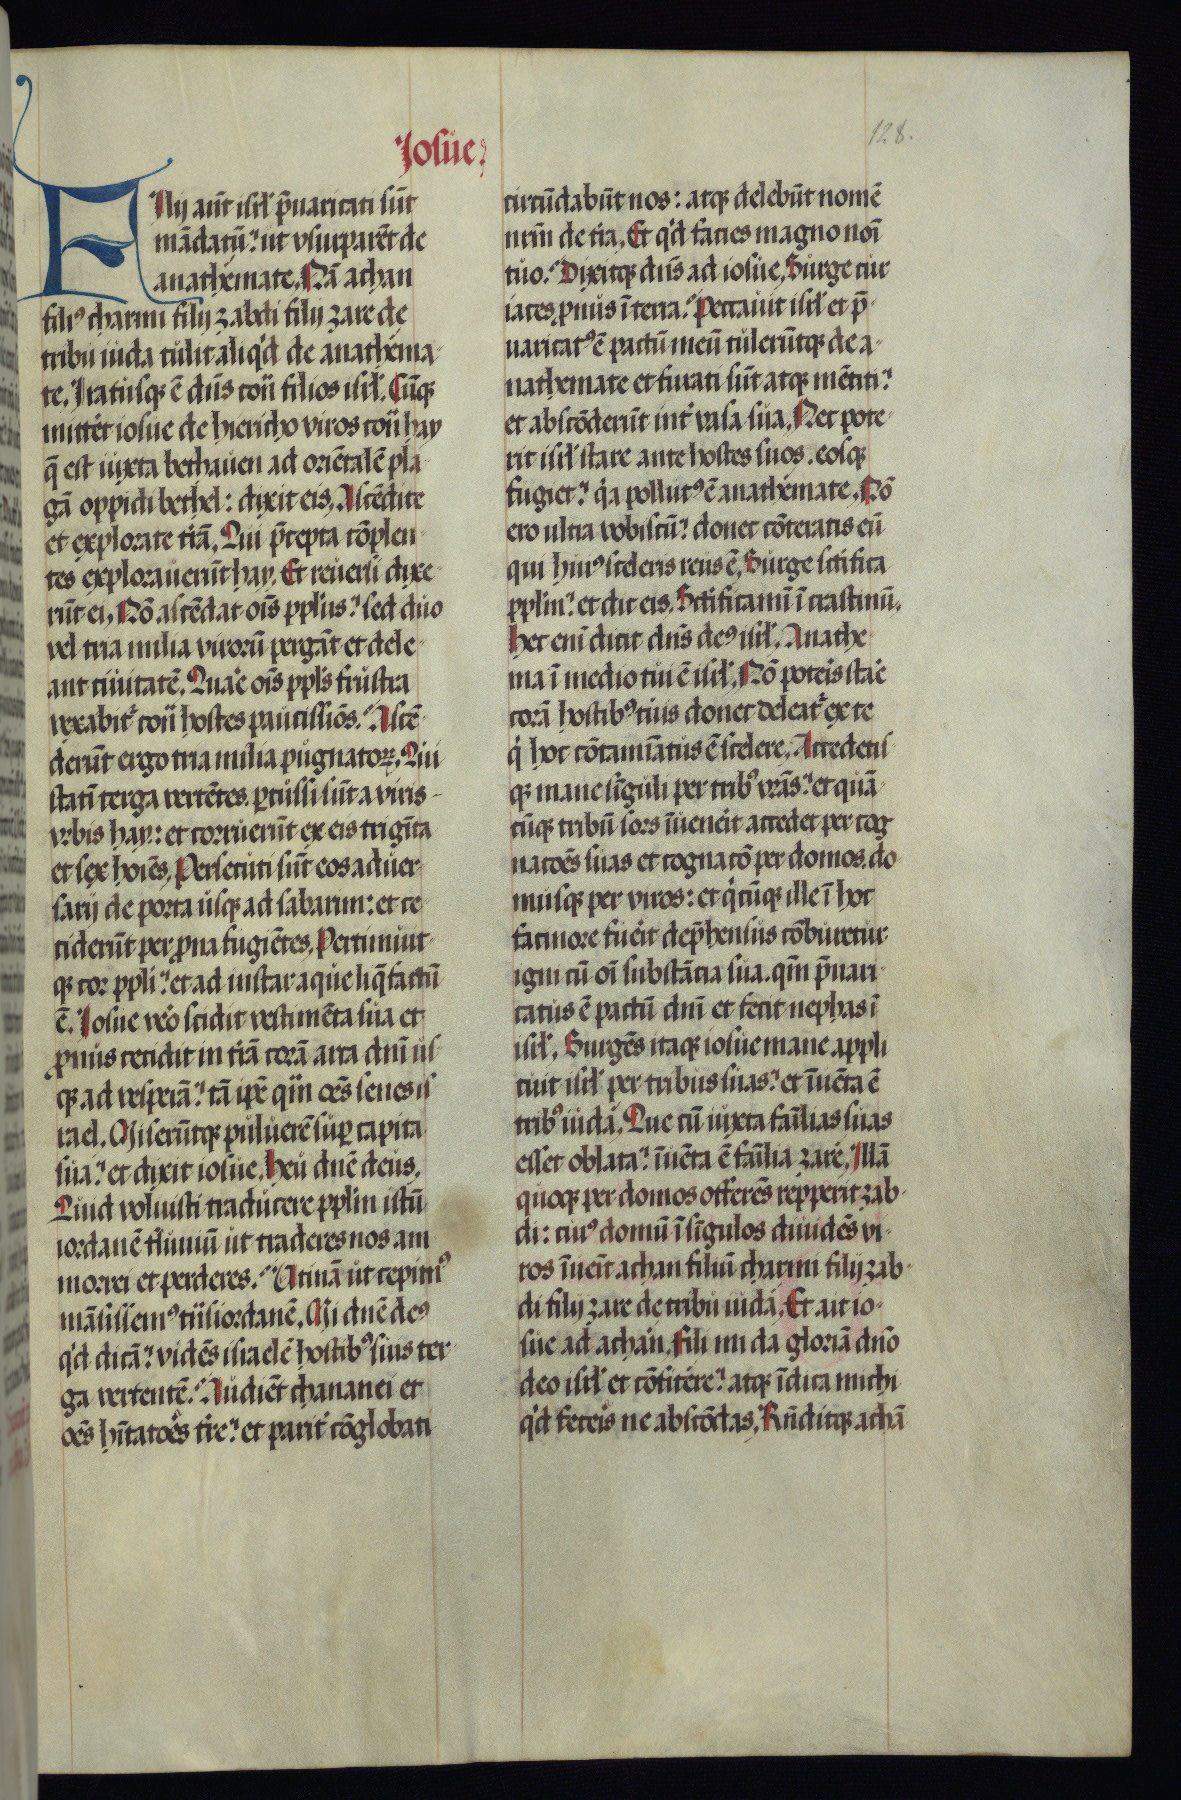 Iosue
128.
FIlij aūt isrl' p̄uaricati sūt
mādatū? ut vsurparēt de
anathemate. Nā achan
filiꝰ charmi filij zabdi filij zare de
tribu iuda tulit aliq'd de anathema-
te. Iratusqꝫ ē dn̄s cont̄ filios isrl'. Cūqꝫ
mitter̄t iosue de hiericho viros cont̄ hay
q̄ est iuxta bethauen ad oriētalē pla-
gā oppidi bethel: dixit eis. Ascēdite
et explorate t̄rā. Qui p̄cepta cōplen-
tes explorauerūt hay. Et reuersi dixe-
rūt ei. Nō ascēdat oīs pplūs? sed duo
vel tria milia virorū pergāt et dele-
ant ciuitatē. Quaē oīs ppls frustra
vexabit' cont̄ hostes paucissiōs? Ascē-
derūt ergo tria milia pugnatoꝝ. Qui
statī terga vertētes. ꝑcussi sūt a viris
vrbis hay: et corruerūt ex eis trigīta
et sex hoīes. Persecuti sūt eos aduer-
sarij de porta usqꝫ ad sabarim: et ce-
ciderūt per ꝓna fugiētes. Pertimuit-
qꝫ cor ppli? et ad instar aque liq̄factū
ē. Iosue vēo scidit vestimēta sua et
ꝓnus cecidit in t̄rā corā arca dnī us-
qꝫ ad vesperā? tā ipē qm̄ oēs senes is-
rael. Miserūtqꝫ puluerē suꝑ capita
sua? et dixit iosue. Heu dnē deus.
Quid voluisti traducere pplm̄ istū
iordanē fluuiū ut traderes nos am
morrei et perderes? Vtinā ut cepimꝰ
māsissemꝰ trās iordanē. Mi dnē deꝰ
q'd dicā? vidēs israelē hostibꝰ suis ter-
ga vertentē? Audiēt chananei et
oēs hītatoēs t̄re? et parit' cōglobati
circūdabūt nos: atqꝫ delebūt nomē
nrm̄ de t̄ra. Et q'd facies magno noī
tuo? Dixitqꝫ dn̄s ad iosue. Surge cur
iaces ꝓnus ī terra? Peccauit isrl' et p̄-
uaricatꝰ ē pactū meū tulerūtqꝫ de a-
nathemate et furati sūt atqꝫ mētiti?
et abscōderūt int' vasa sua. Nec pote-
rit isrl' stare ante hostes suos. eosqꝫ
fugiet? q̇a pollutꝰ ē anathemate. Nō
ero ultra vobiscū? donec cōteratis eū
qui huiꝰ sceleris reus ē. Surge sc̄ifica
pplm̄? et dic eis. Sc̄ificamī ī crastinū.
Hec enī dicit dn̄s deꝰ isrl'. Anathe-
ma ī medio tui ē isrl'. Nō poteris staē
corā hostibꝰ tuis donec deleat' ex te
q̇ hoc cōtamīatus ē scelere. Accedetis-
qꝫ mane sīguli per tribꝰ vrās? et quā-
cūqꝫ tribū sors īuenēit accedet per cog-
natoēs suas et cognatō per domos. do-
musqꝫ per viros: et q̇cūqꝫ ille ī hoc
facinore fuēit dep̄hensus cōburetur
igni cū oī substācia sua. qm̄ p̄uari-
catus ē pactū dnī et fecit nephas ī
isrl'. Surgēs itaqꝫ iosue mane appli-
cuit isrl' per tribus suas? et īuēta ē
tribꝰ iuda. Que cū iuxta fam̄lias suas
esset oblata? īuēta ē fam̄lia zare. Illā
quoqꝫ per domos offerēs repperit zab-
di: cuiꝰ domū ī sīgulos diuidēs vi-
ros īuēit achan filiū charmi filij zab-
di filij zare de tribu iuda. Et ait io-
sue ad achan. Fili mi da gloriā dn̄o
deo isrl' et cōfitere? atqꝫ īdica michi
q'd feceis ne abscōdas. Rn̄ditqꝫ achā